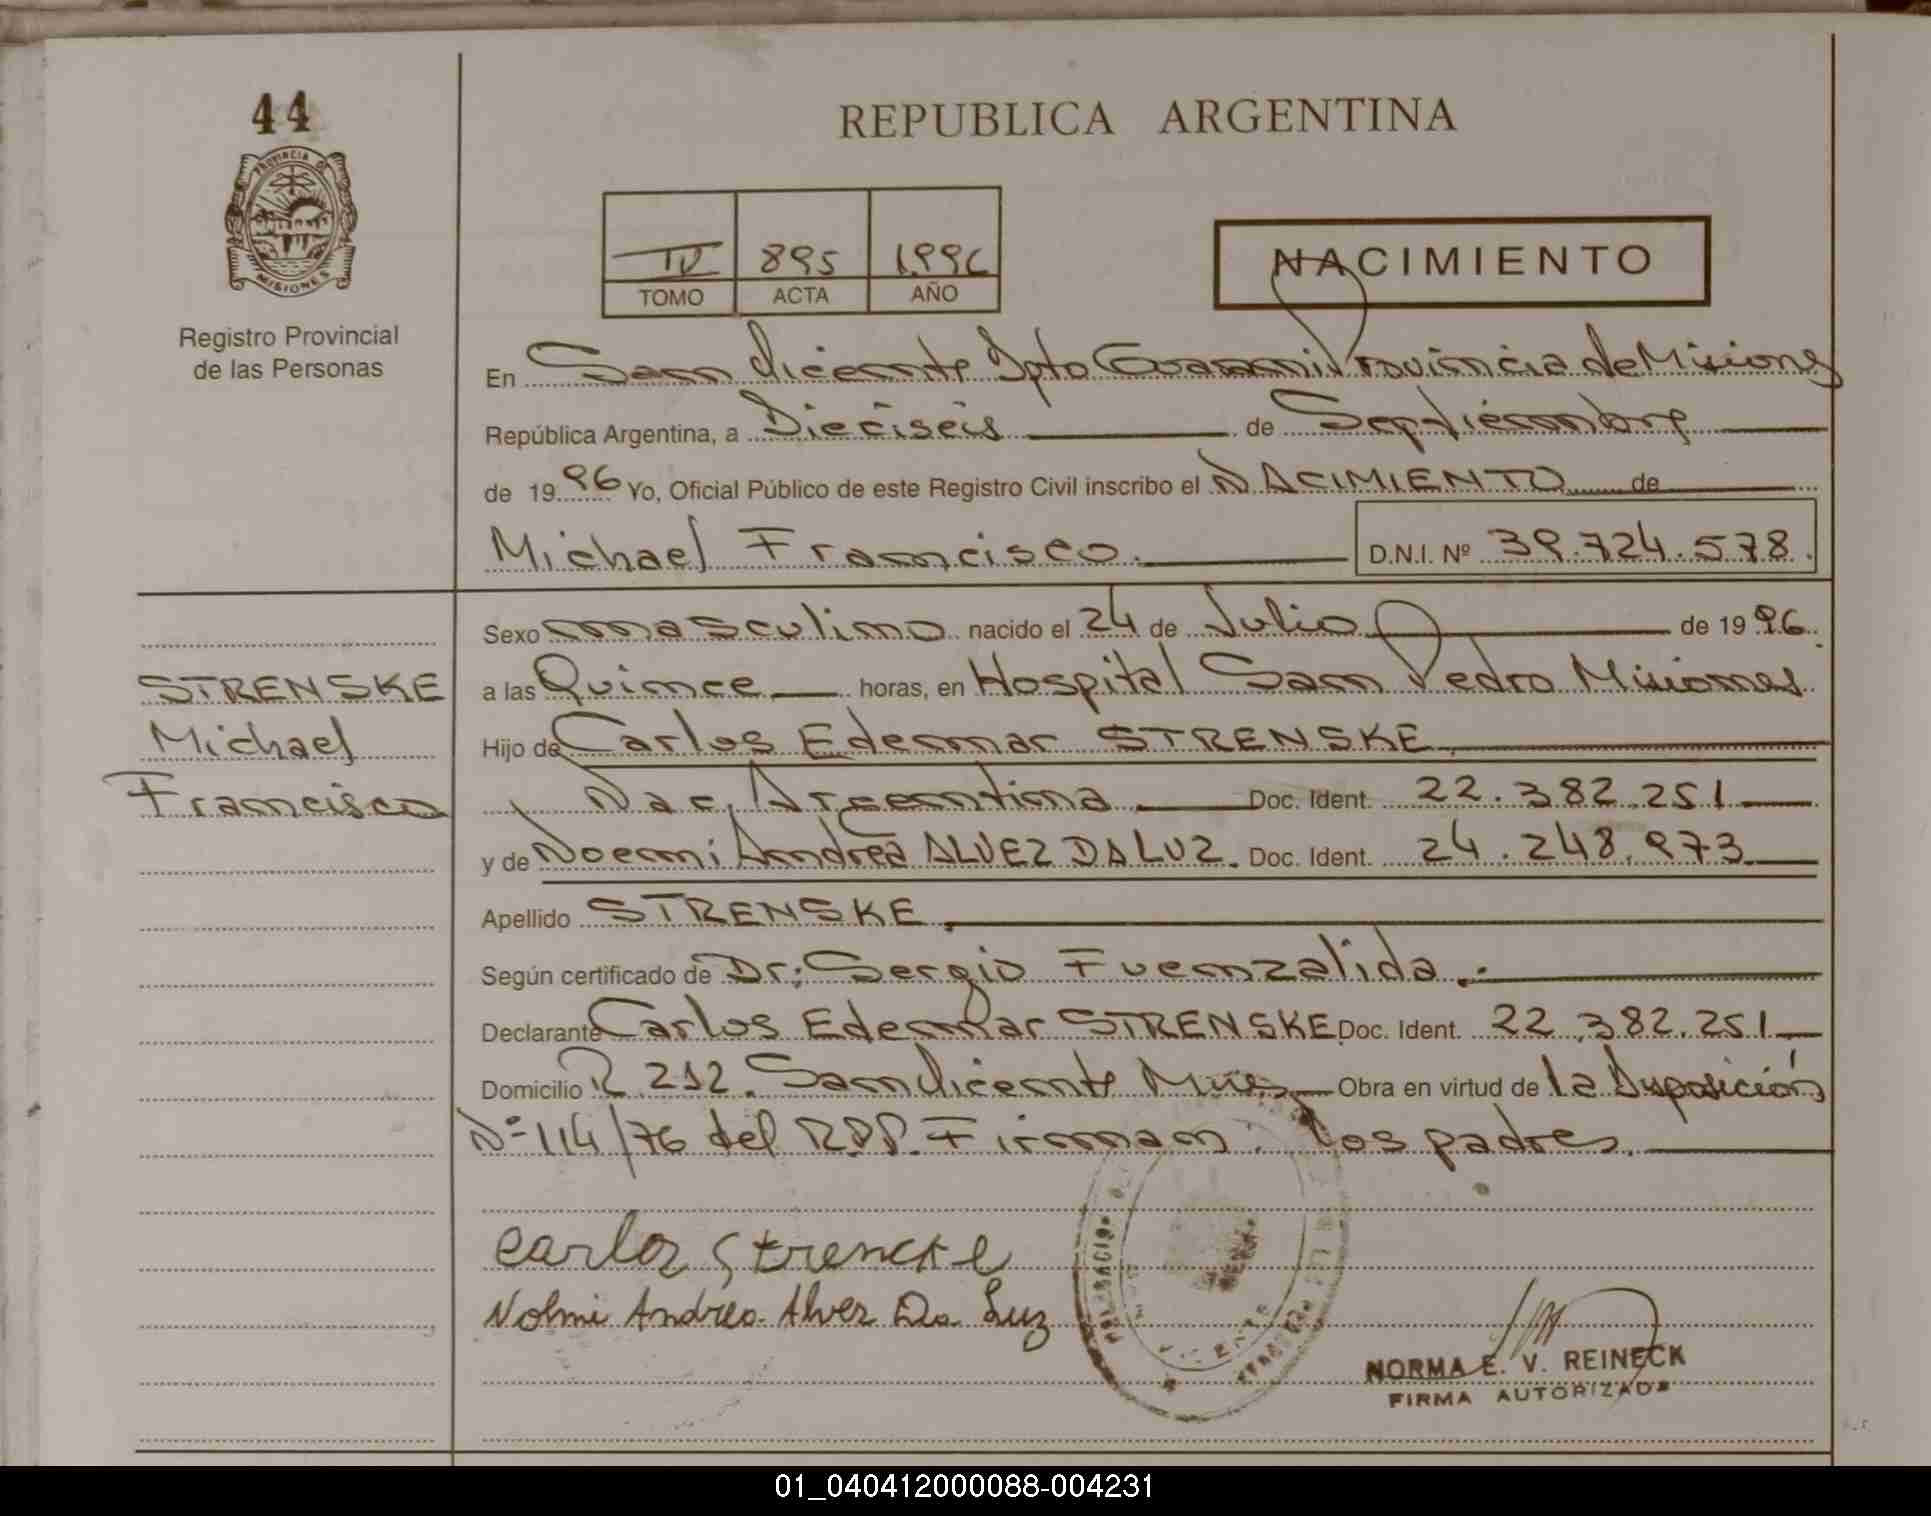 44
PROVINCIA DE
MISIONES
Registro Provincial
de las Personas
REPUBLICA ARGENTINA
IV 895 1.996
TOMO ACTA AÑO
NACIMIENTO
En San Vicente Dpto Guarani Provincia de Misiones
República Argentina, a Dieciseis de Septiembre
de 1996 Yo, Oficial Público de este Registro Civil inscribo el NACIMIENTO de
Michael Francisco. D.N.I. Nº 39.724.578.
Sexo masculino nacido el 24 de Julio de 1996.
STRENSKE
Michael
Francisco
a las Quince horas, en Hospital San Pedro Misiones
Hijo de Carlos Edemar STRENSKE
Nac. Argentina Doc. Ident. 22.382.251
y de Noemi Andrea ALVEZ DA LUZ. Doc. Ident. 24.248.973
Apellido STRENSKE.
Según certificado de Dr: Sergio Fuenzalida.
Declarante Carlos Edemar STRENSKE Doc. Ident. 22.382.251
Domicilio R 212. San Vicente Mnes Obra en virtud de la Disposición
Nº 114/76 del R.P.P. Firman: Los padres.
Carlos Strencke
Nohmi Andrea Alvez Da Luz
NORMA E. V. REINECK
FIRMA AUTORIZADA
01_040412000088-004231